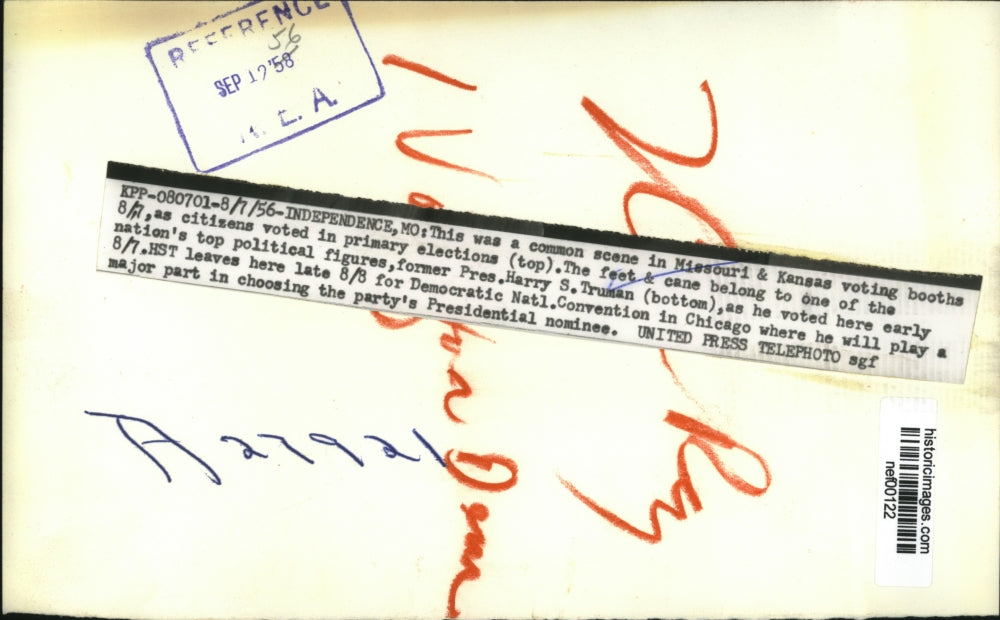 REFERENCE
56
SEP 12'58
N. E. A.
KPP-080701-8/7/56-INDEPENDENCE,MO:This was a common scene in Missouri & Kansas voting booths
8/7,as citizens voted in primary elections (top).The feet & cane belong to one of the
nation's top political figures,former Pres.Harry S.Truman (bottom),as he voted here early
8/7.HST leaves here late 8/8 for Democratic Natl.Convention in Chicago where he will play a
major part in choosing the party's Presidential nominee. UNITED PRESS TELEPHOTO sgf
A27921
historicimages.com
nef00122